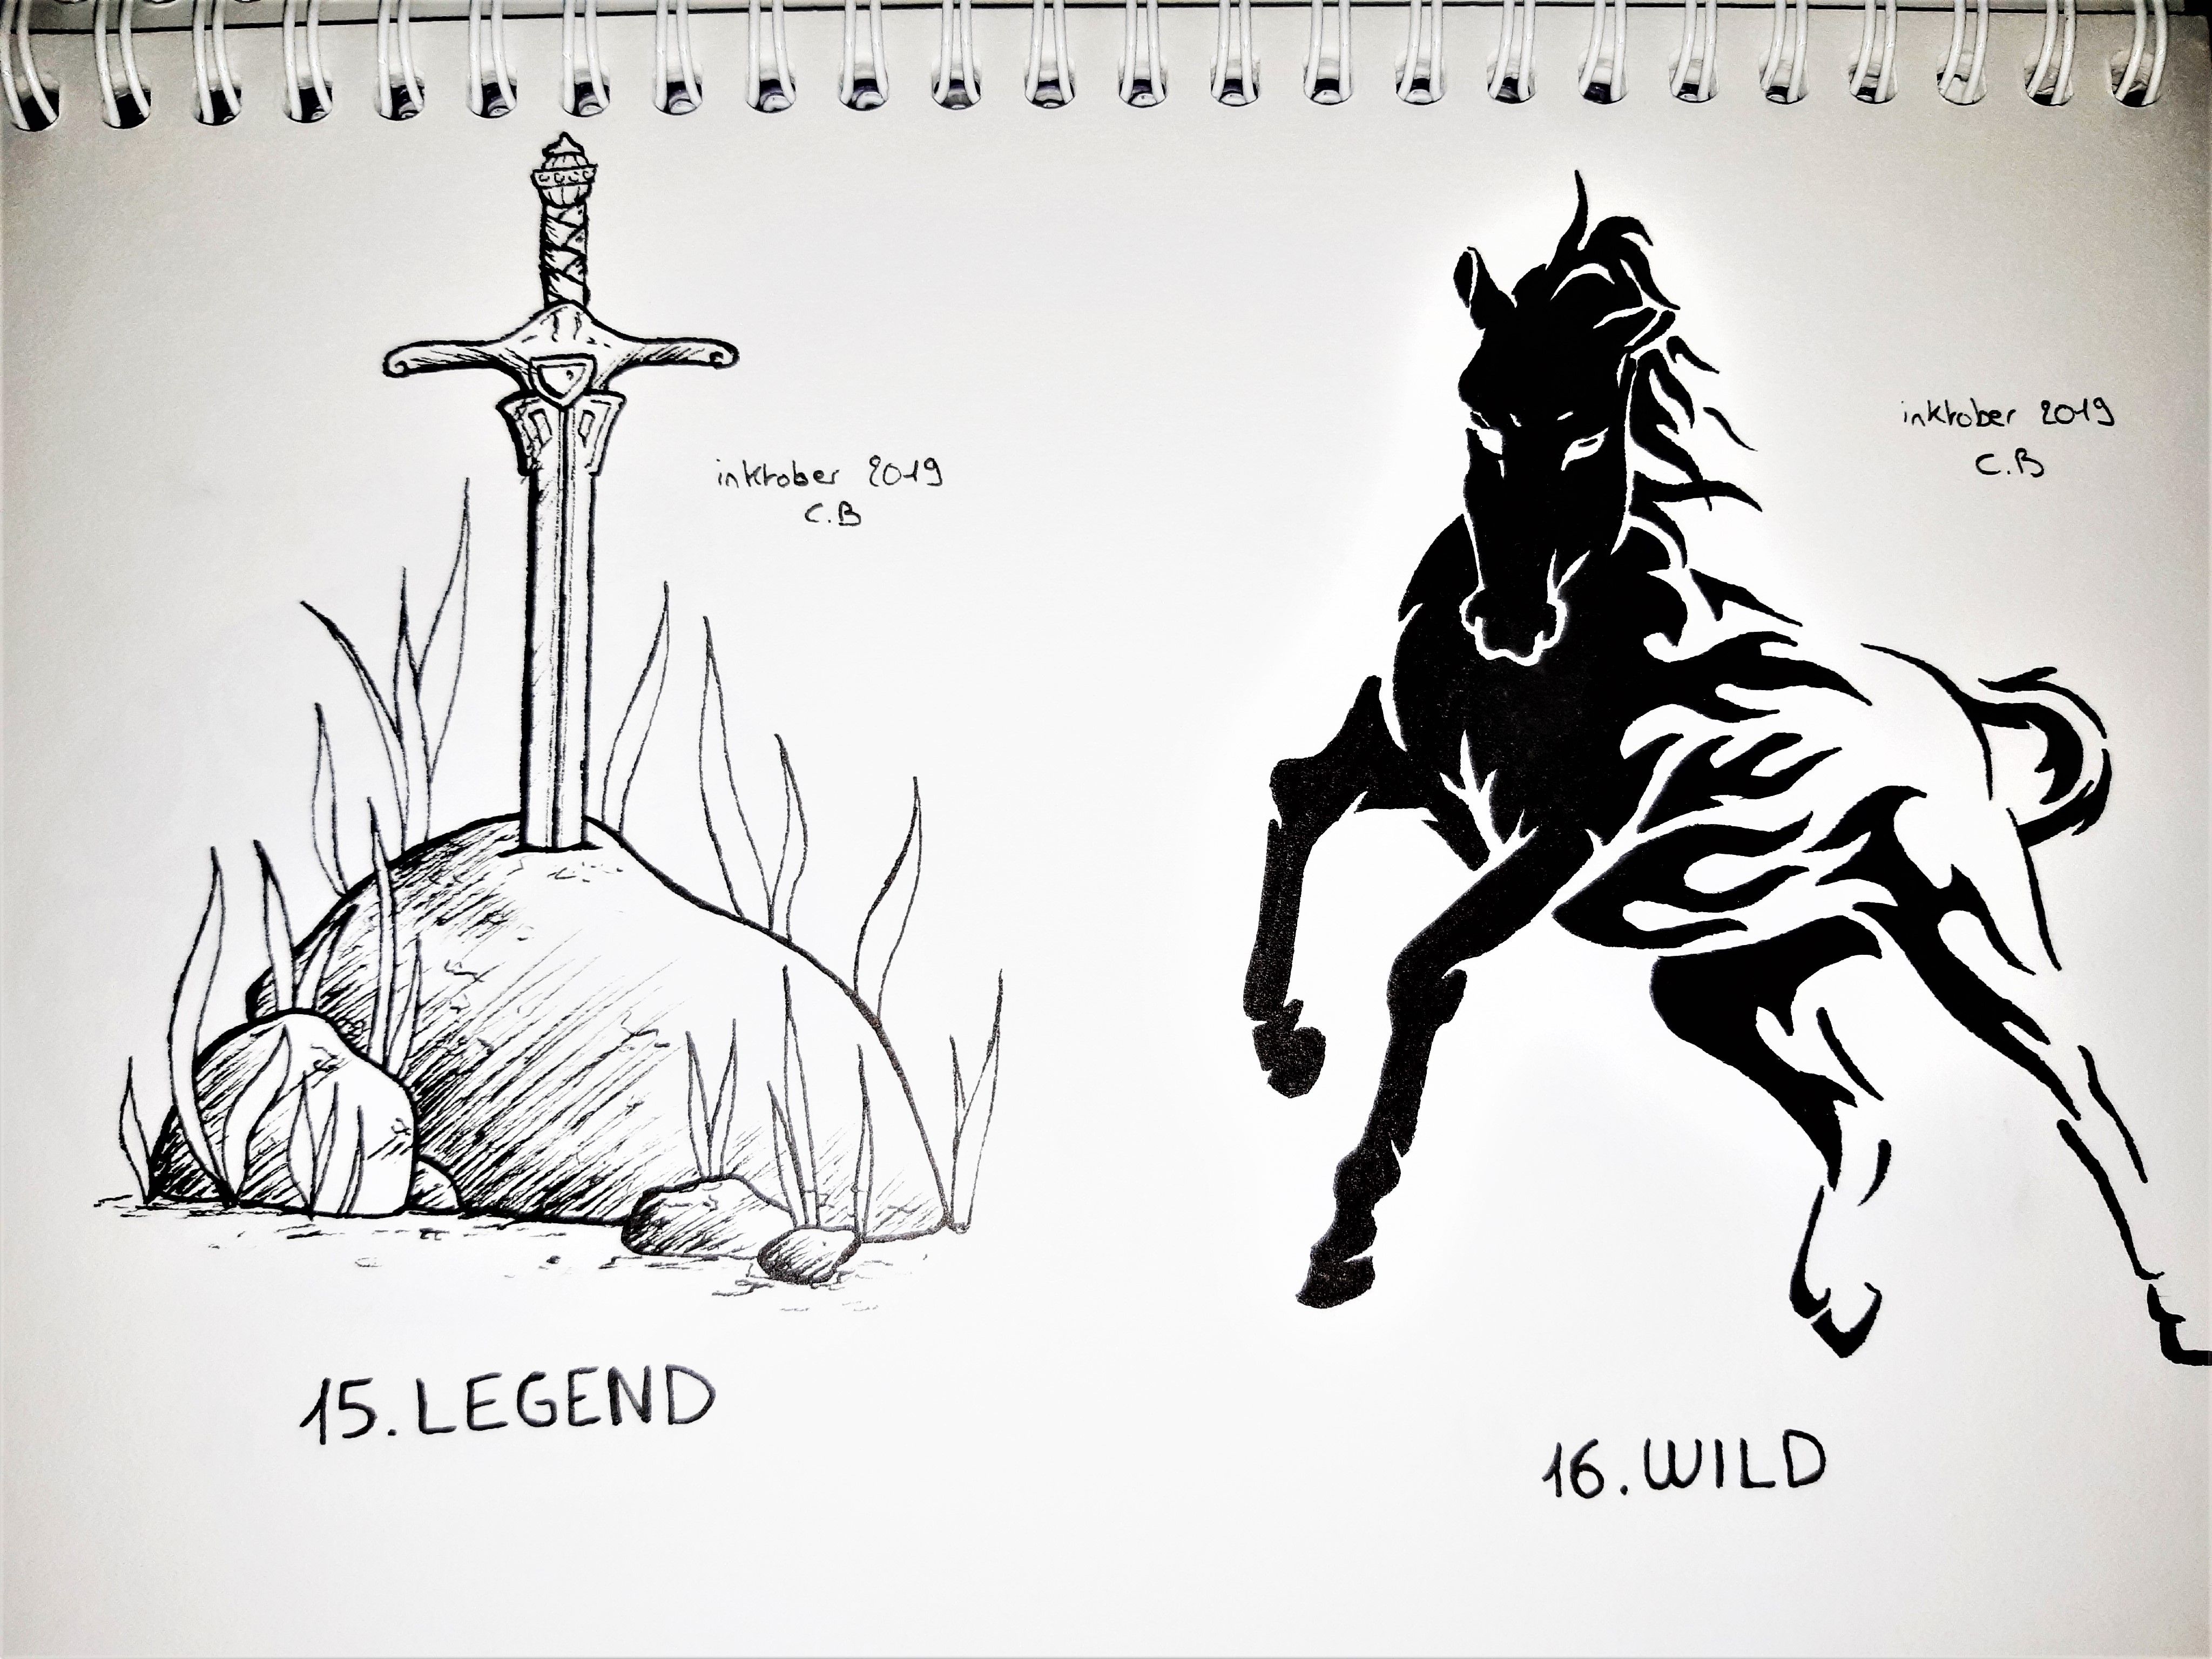 inktober 2019
C.B
15. LEGEND
inktober 2019
C.B
16. WILD